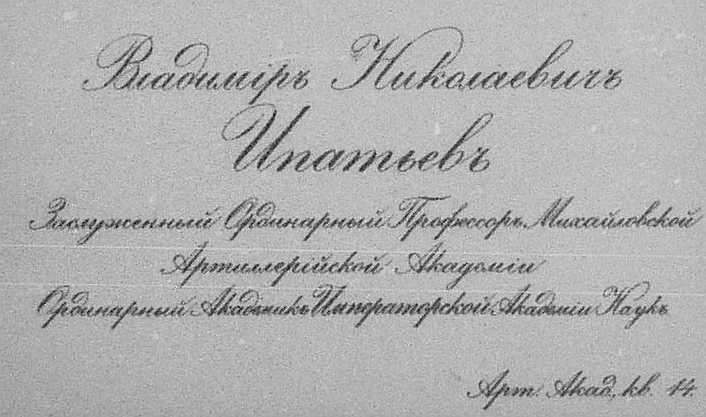 Владиміръ Николаевичъ
Ипатьевъ
Заслуженный Ординарный Профессоръ Михайловской
Артиллерійской Академіи
Ординарный Академикъ Императорской Академіи Наукъ
Арт. Акад., кв. 14.